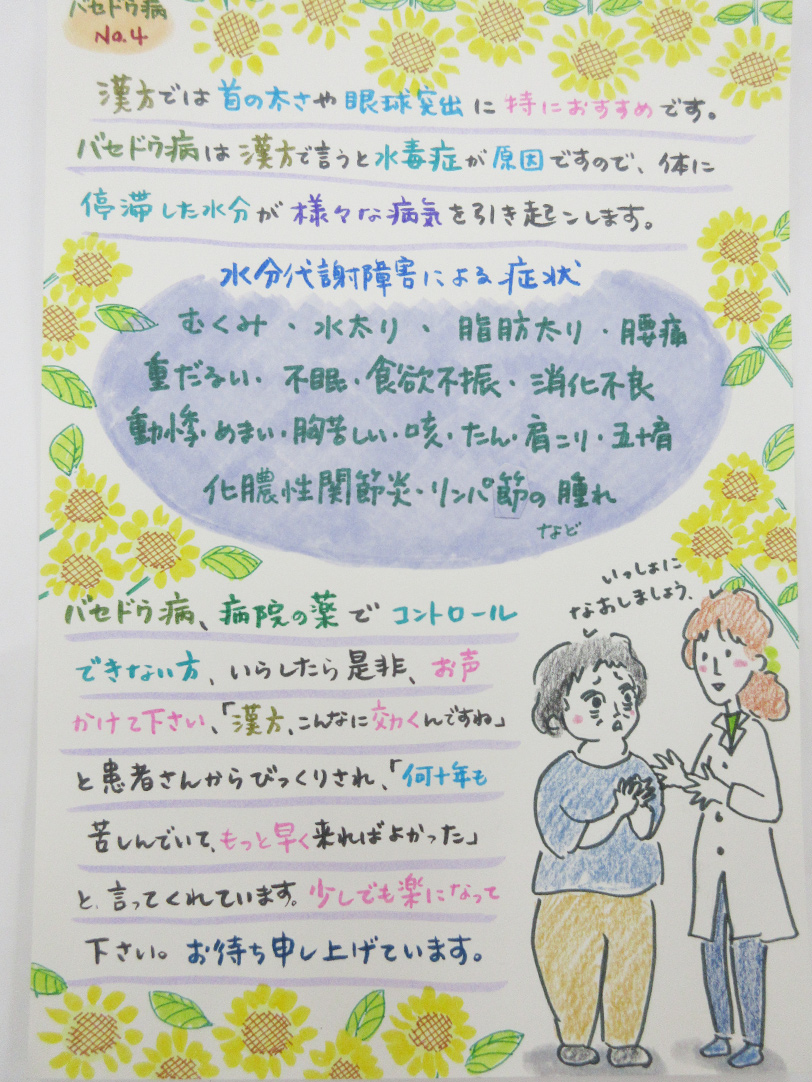 バセドウ病
No.4
漢方では首の太さや眼球突出に特におすすめです。
バセドウ病は漢方で言うと水毒症が原因ですので、体に
停滞した水分が様々な病気を引き起こします。
水分代謝障害による症状
むくみ・水太り・脂肪太り・腰痛
重だるい・不眠・食欲不振・消化不良
動悸・めまい・胸苦しい・咳・たん・肩こり・五十肩
化膿性関節炎・リンパ節の腫れ
など
いっしょに
なおしましょう、
バセドウ病、病院の薬でコントロール
できない方、いらしたら是非、お声
かけて下さい、「漢方、こんなに効くんですね」
と患者さんからびっくりされ、「何十年も
苦しんでいて、もっと早く来ればよかった」
と、言ってくれています。少しでも楽になって
下さい。お待ち申し上げています。